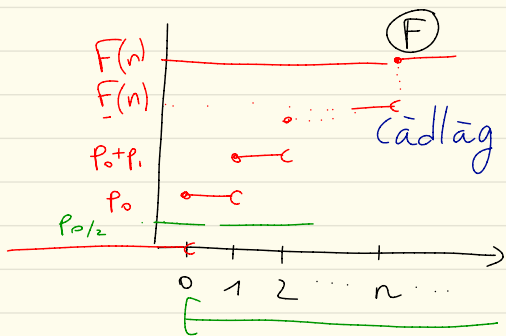 F
F(n)
F_(n)
càdlàg
p₀+p₁
p₀
p₀/2
0 1 2 ... n ...